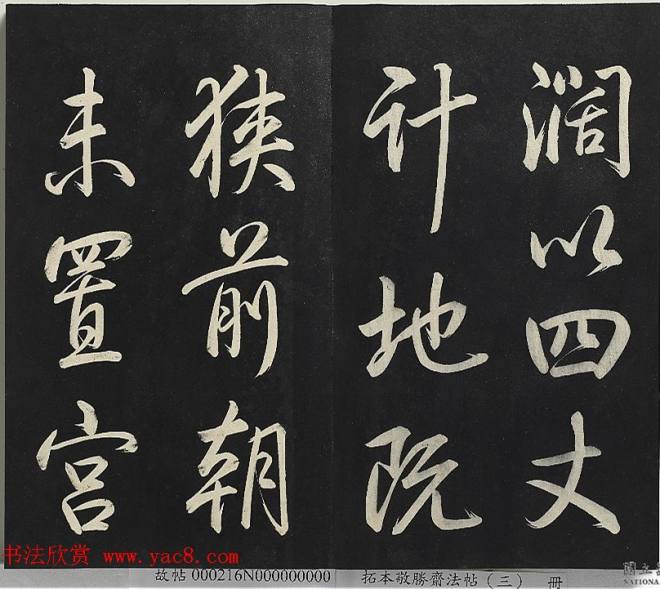 濶以四丈
计地既
狭前朝
未置宫
书法欣赏 www.yac8.com
故帖 000216N000000000
拓本敬勝齋法帖（三） 冊
國立
NATIONA